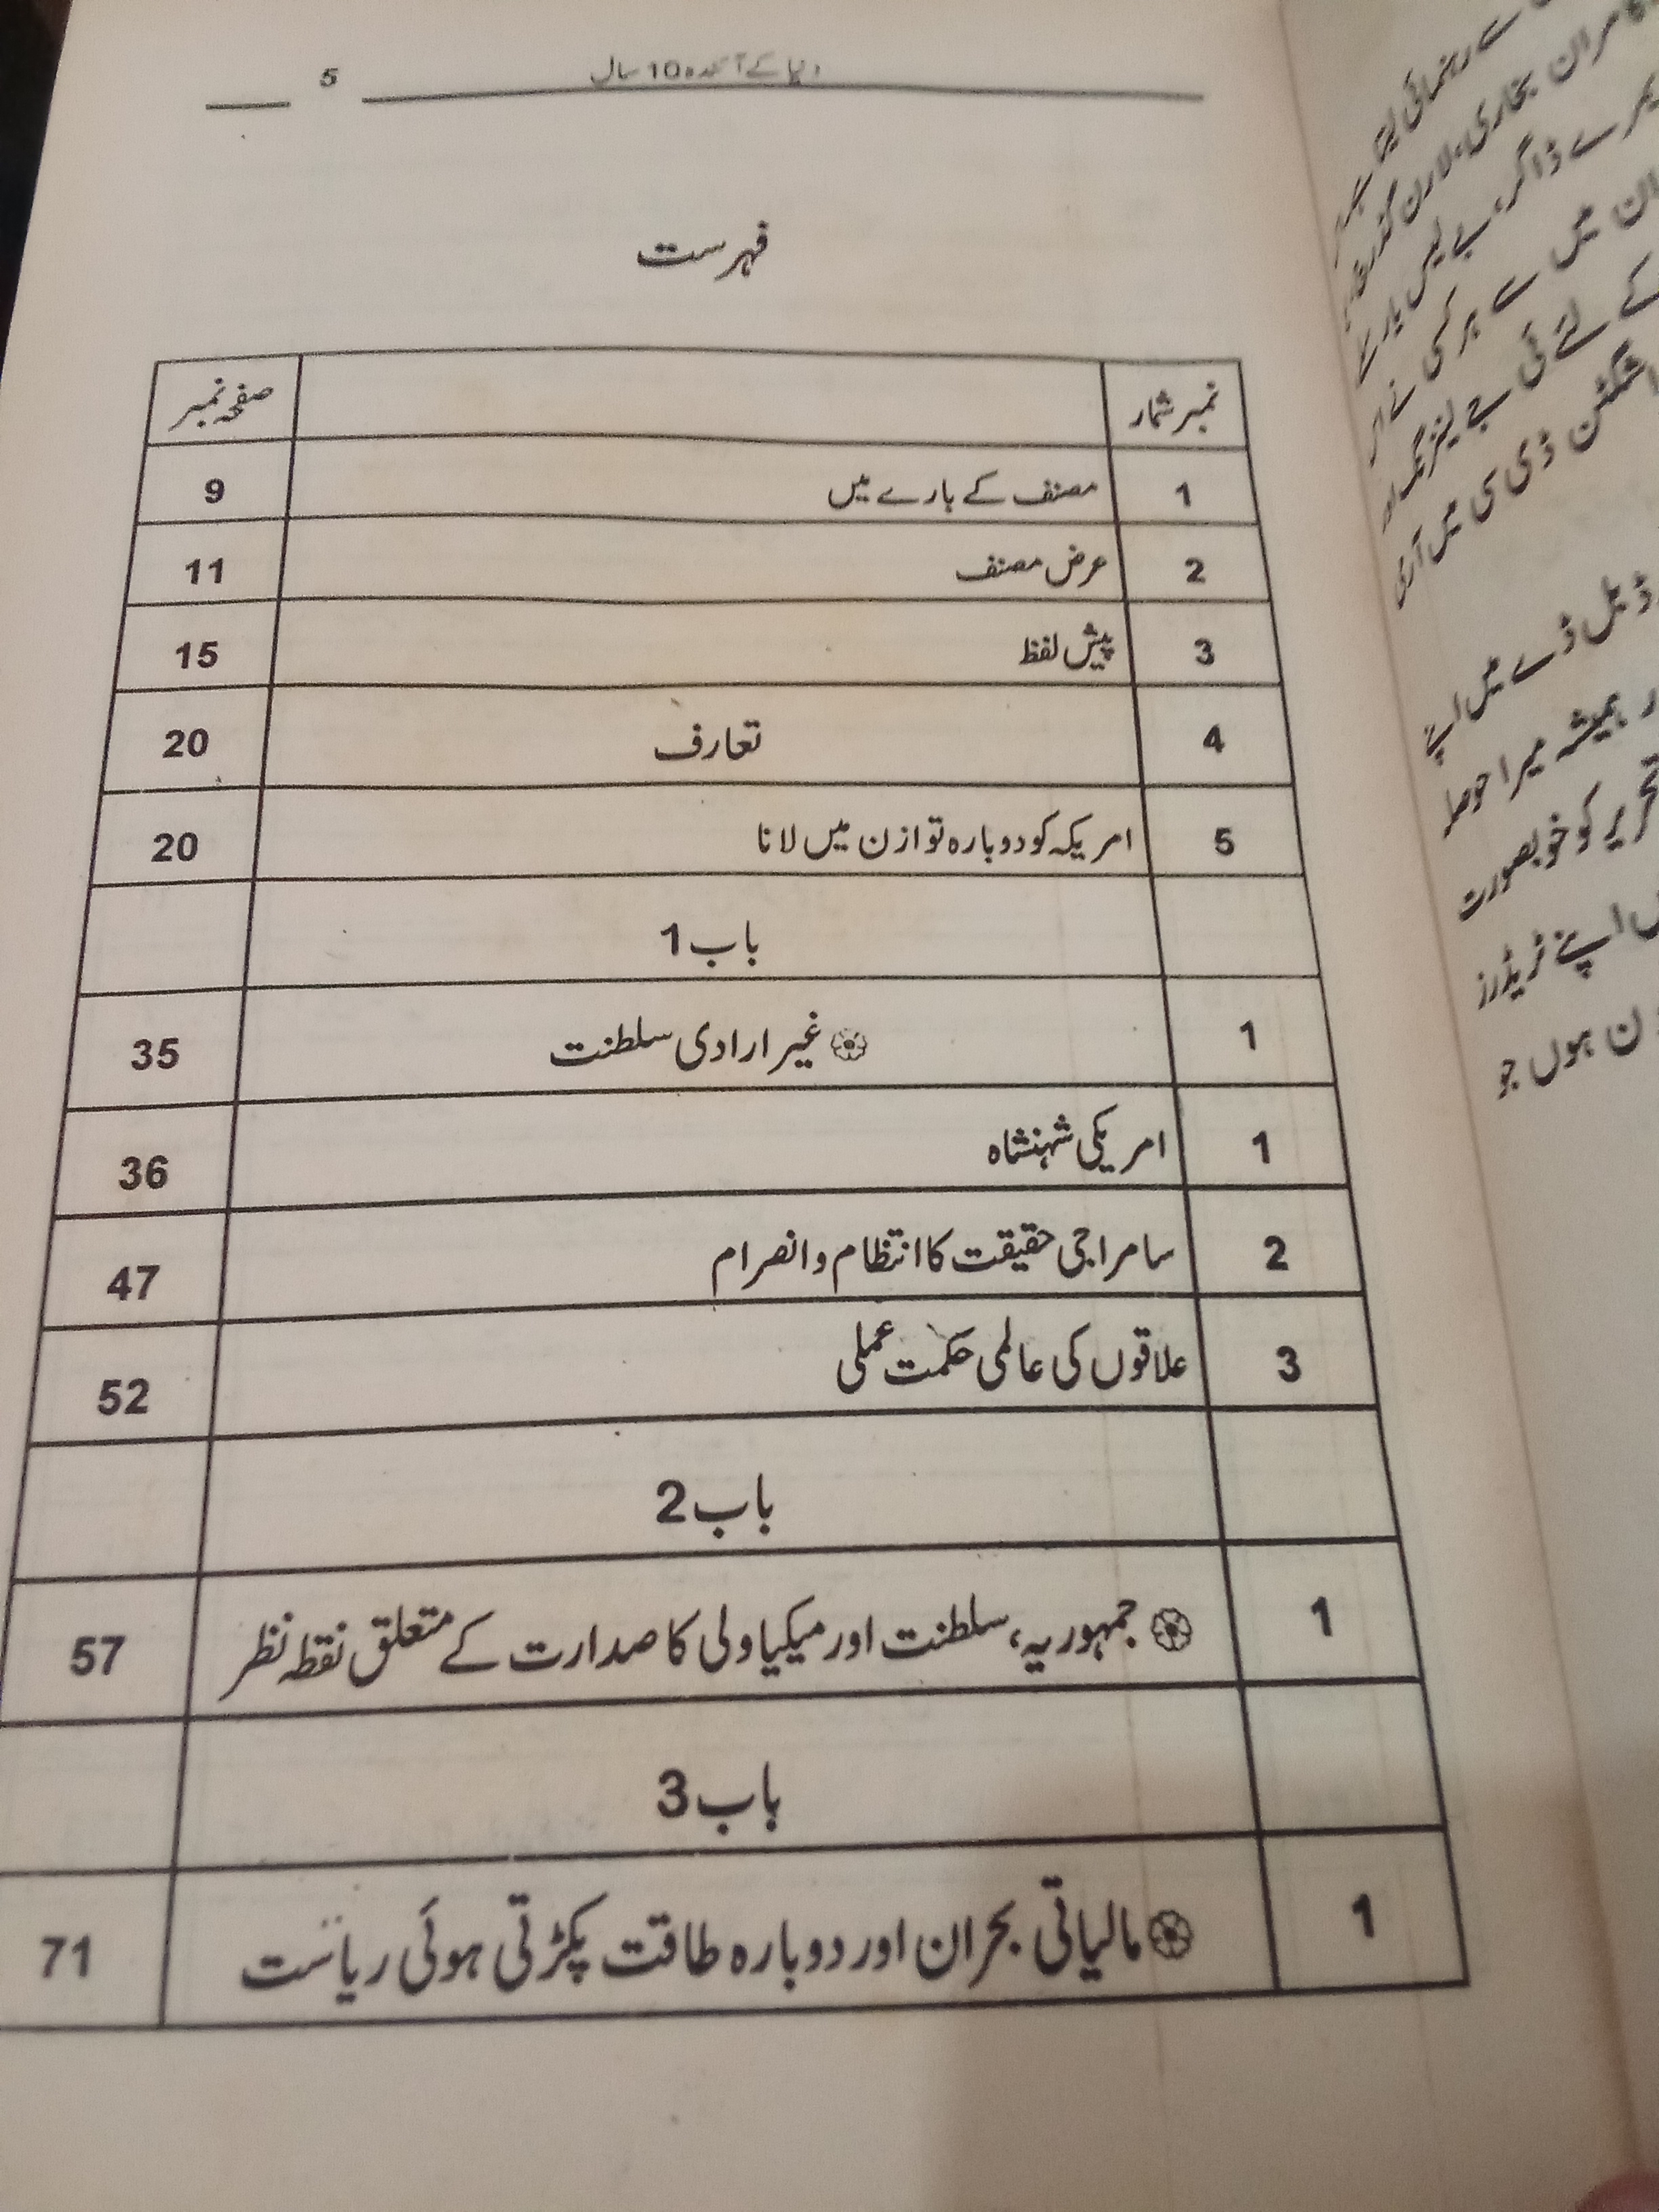 دنیا کے آئندہ 10 سال 5
فہرست
نمبر شمار صفحہ نمبر
1 مصنف کے بارے میں 9
2 عرض مصنف 11
3 پیش لفظ 15
4 تعارف 20
5 امریکہ کو دوبارہ توازن میں لانا 20
باب 1
1 غیر ارادی سلطنت 35
1 امریکی شہنشاہ 36
2 سامراجی حقیقت کا انتظام و انصرام 47
3 علاقوں کی عالمی حکمت عملی 52
باب 2
1 جمہوریہ، سلطنت اور میکیاولی کا صدارت کے متعلق نقطہ نظر 57
باب 3
1 مالیاتی بحران اور دوبارہ طاقت پکڑتی ہوئی ریاست 71
سے رہنمائی لیتا
کامران بخاری، لارن
میرے ڈاگر، بے لیس
ان میں سے ہر کسی نے اس
کے لئے ٹی جے لینزنگ اور
واشنگٹن ڈی سی میں آری
ڈبل ڈے میں اپنے
ہمیشہ میرا حوصلہ
تحریر کو خوبصورت
اپنے ٹریڈرز
ن ہوں جو